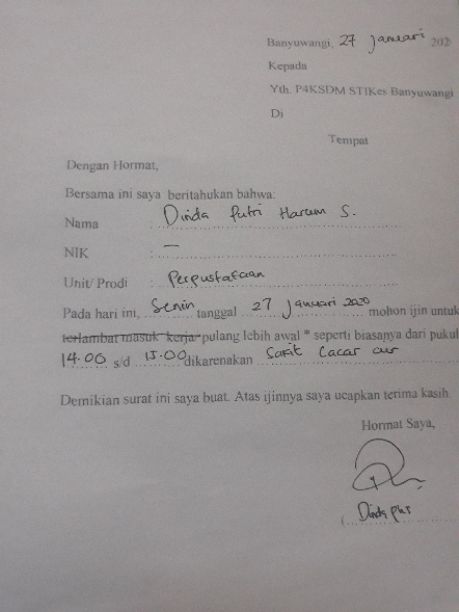 Banyuwangi, 27 Januari 202
Kepada
Yth. P4KSDM STIKes Banyuwangi
Di
Tempat
Dengan Hormat,
Bersama ini saya beritahukan bahwa:
Nama : Dinda Putri Harum S.
NIK : —
Unit/ Prodi : Perpustakaan
Pada hari ini, Senin tanggal 27 Januari 2020 mohon ijin untuk
terlambat masuk kerja pulang lebih awal * seperti biasanya dari pukul
14.00 s/d 15.00 dikarenakan Sakit Cacar air
Demikian surat ini saya buat. Atas ijinnya saya ucapkan terima kasih.
Hormat Saya,
(Dinda